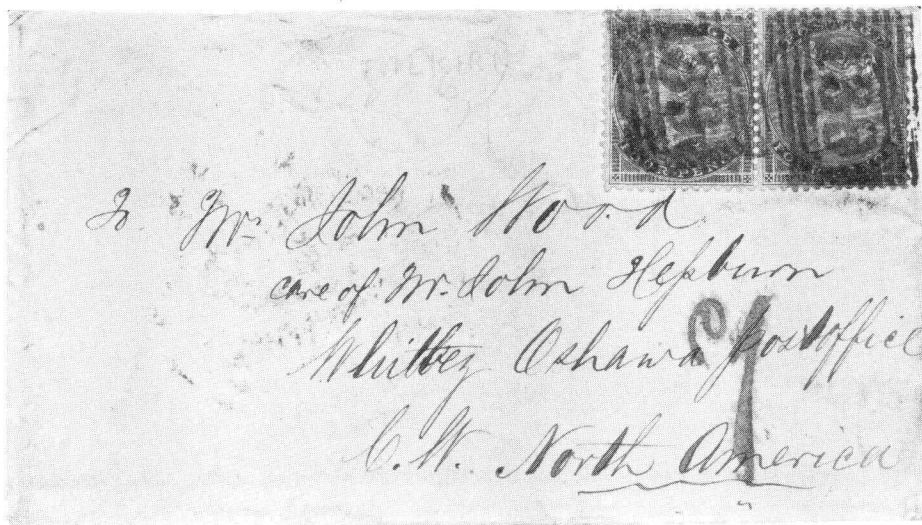 To Mr John Wood
care of Mr. John Hepburn
Whitbey Oshawa postoffice
C.W. North America